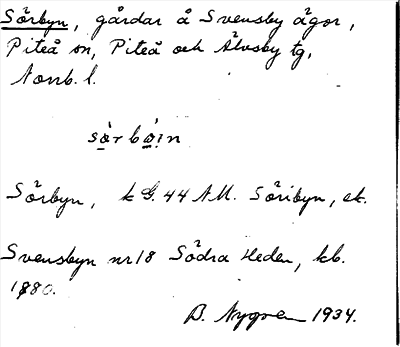 Sörbyn, gårdar å Svensby ägor,
Piteå sn, Piteå och Älvsby tg,
Norrb. l.
sörböin
Sörbyn, k G. 44 A.M. Söribyn, ek.
Svensbyn nr 18 Södra Heden, kb.
1880.
B. Nygren 1934.